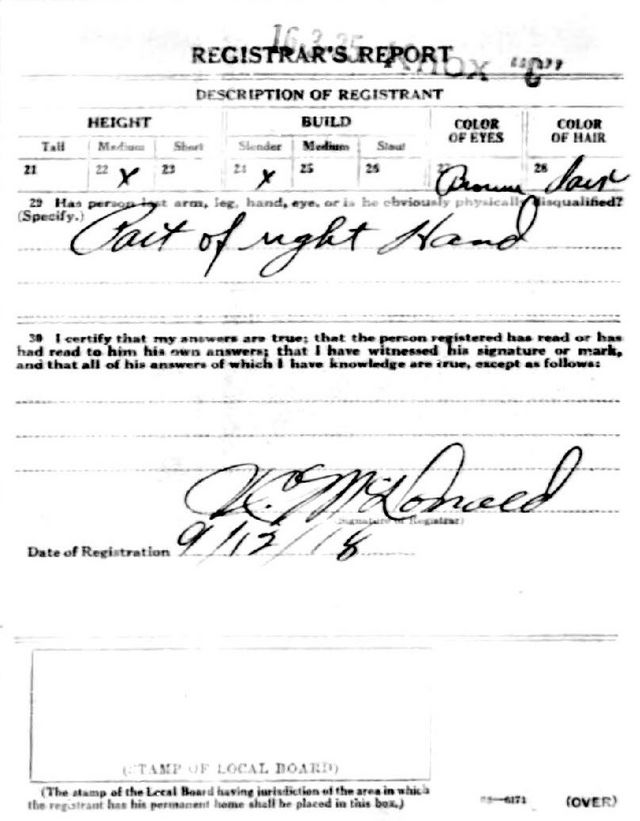 16.3.35 Knox "C"
REGISTRAR'S REPORT
DESCRIPTION OF REGISTRANT
HEIGHT BUILD COLOR OF EYES COLOR OF HAIR
Tall Medium Short Slender Medium Stout
21 22 X 23 24 X 25 26 27 Brown 28 Dark
29 Has person lost arm, leg, hand, eye, or is he obviously physically disqualified?
(Specify.) Part of right Hand
30 I certify that my answers are true; that the person registered has read or has
had read to him his own answers; that I have witnessed his signature or mark,
and that all of his answers of which I have knowledge are true, except as follows:
McDonald
(Signature of Registrar)
Date of Registration 9/12/18
(STAMP OF LOCAL BOARD)
(The stamp of the Local Board having jurisdiction of the area in which
the registrant has his permanent home shall be placed in this box.)
—6171 (OVER)